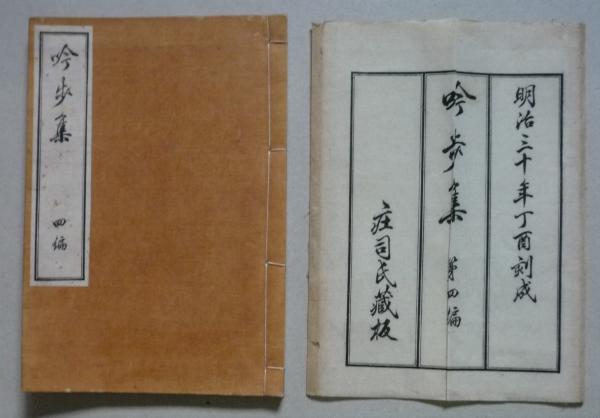 吟步集 四編
明治三十年丁酉刻成
吟步集 第四編
庄司氏藏板